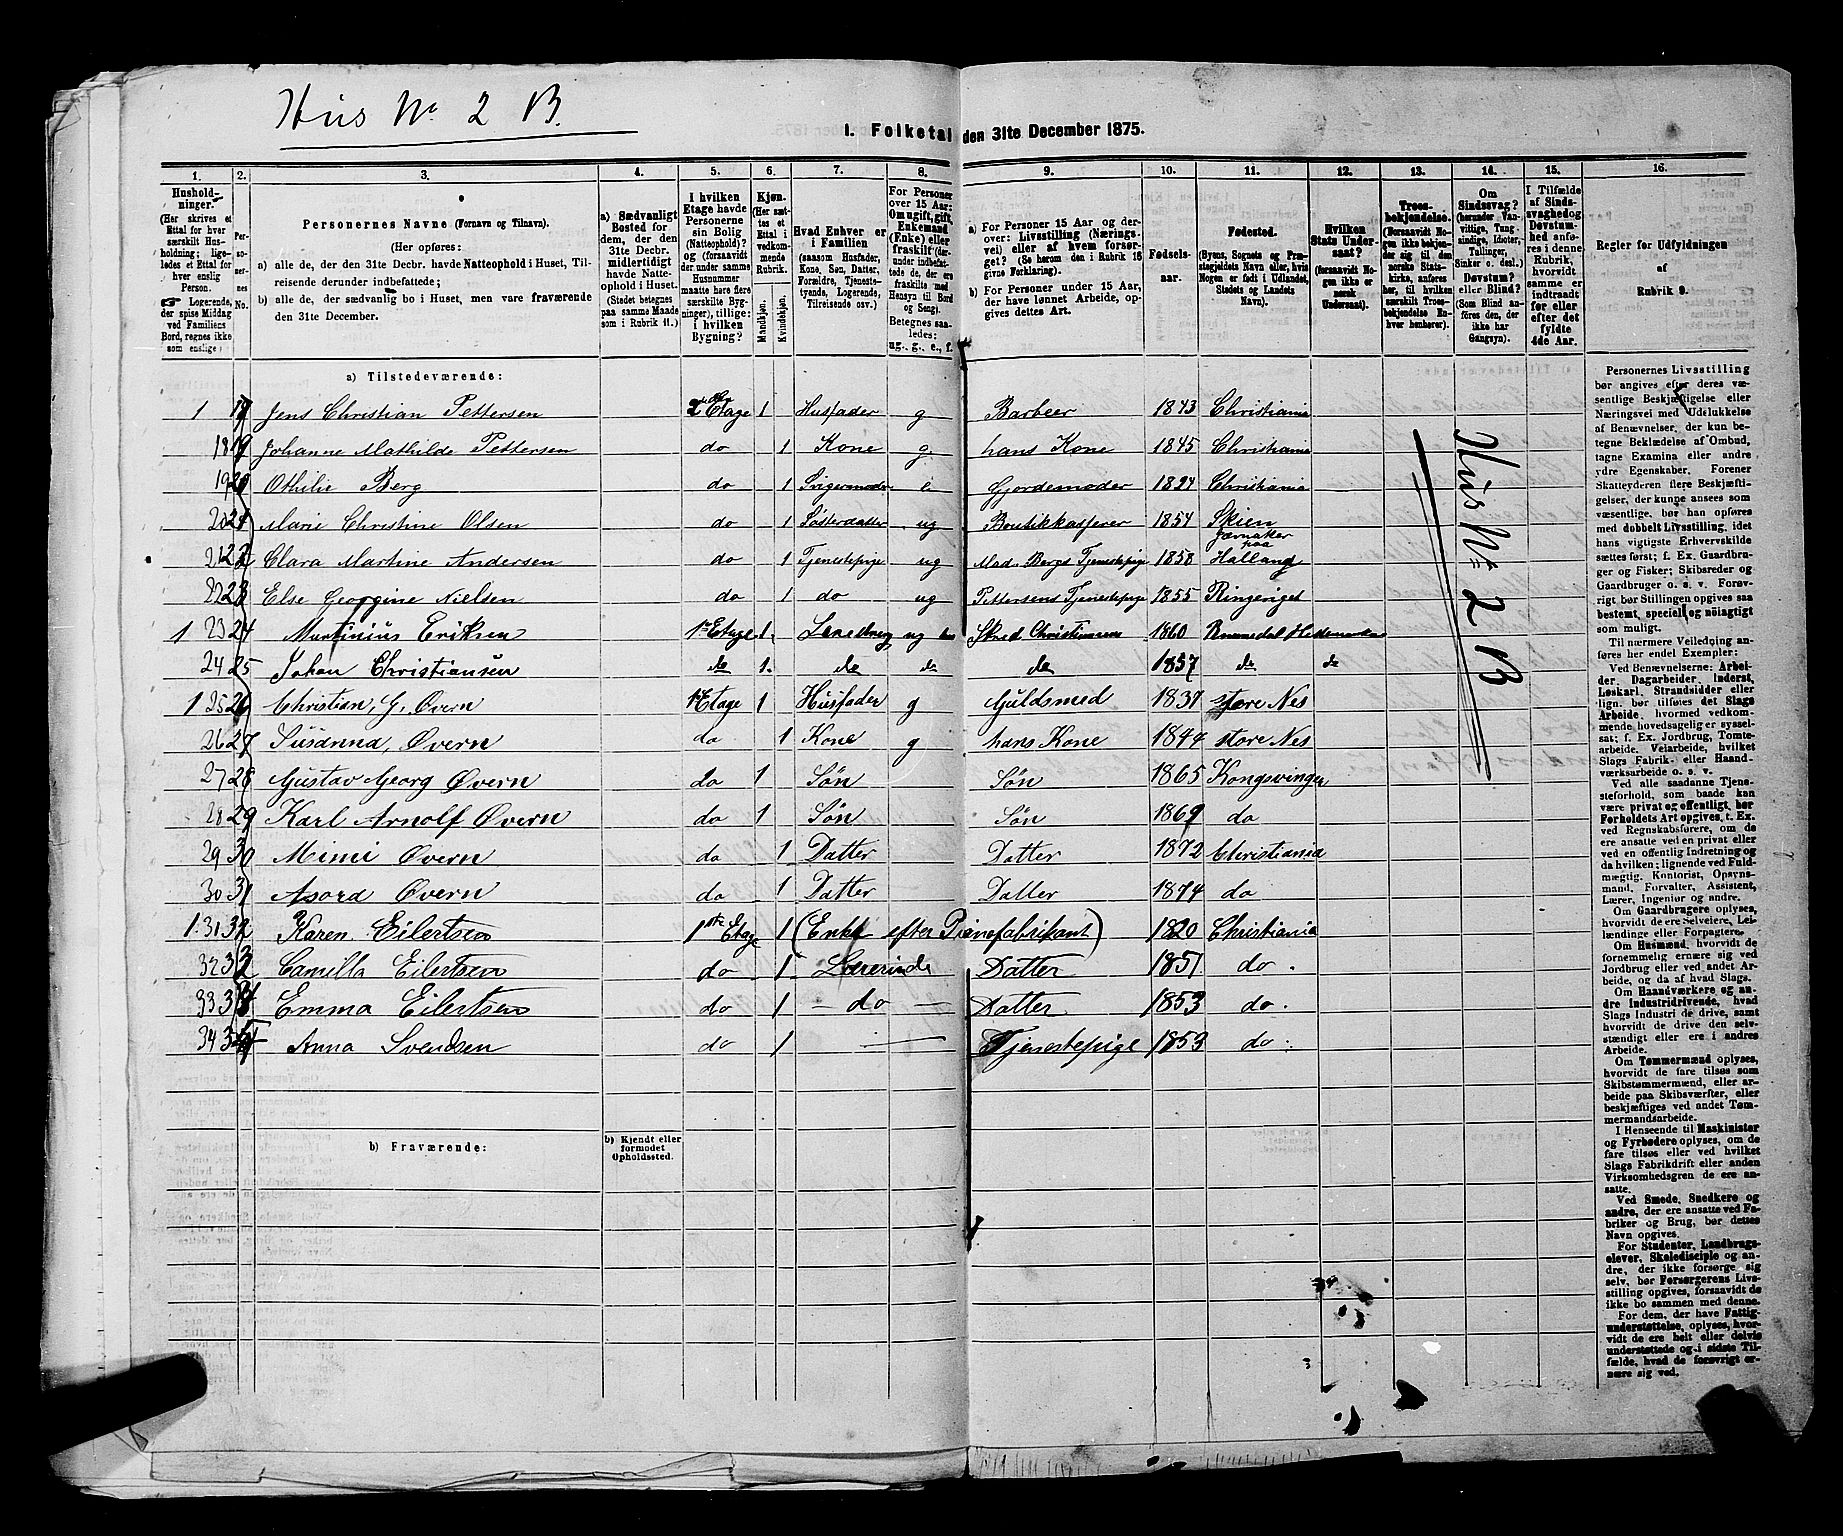 Hus No 2 B.
I. Folketal den 31te December 1875.
1. 2. 3. 4. 5. 6. 7. 8. 9. 10. 11. 12. 13. 14. 15. 16.
Hushold-
ninger.
(Her skrives et
Ettal for hver
særskilt Hus-
holdning; lige-
ledes et Ettal for
enslig
Person.
Logerende,
der spise Middag
ved Familiens
Bord, regnes ikke
som enslige).
Per-
soner-
nes
No.
Personernes Navne (Fornavn og Tilnavn).
(Her opføres:
a) alle de, der den 31te Decbr. havde Natteophold i Huset, Til-
reisende derunder indbefattede;
b) alle de, der sædvanlig bo i Huset, men vare fraværende
den 31te December.
a) Sædvanligt
Bosted for
dem, der den
31te Decbr.
midlertidigt
havde Natte-
ophold i Huset.
(Stedet betegnes
paa samme Maade
som i Rubrik 11.)
I hvilken
Etage havde
Personerne
sin Bolig
(Natteophold)?
og (forsaavidt
der under samme
Husnummer
maatte høre flere
særskilte Byg-
ninger), tillige:
i hvilken
Bygning?
Kjøn.
(Her sæt-
tes et
Ettal i
vedkom-
mende
Rubrik.
Mandkjøn.
Kvindekjøn.
Hvad Enhver er
i Familien
(saasom Husfader,
Kone, Søn, Datter,
Forældre, Tjeneste-
tyende, Logerende,
Tilreisende osv.)
For Personer
over 15 Aar:
Om ugift, gift,
Enkemand
(Enke) eller
fraskilt
Betegnes saa-
ledes:
ug., g., e., f.
a) For Personer 15 Aar og der-
over: Livsstilling (Nærings-
vei) eller af hvem forsør-
get? (Se herom den i Rubrik 16
givne Forklaring).
b) For Personer under 15 Aar,
der have lønnet Arbeide, op-
gives dettes Art.
Fødsels-
aar.
Fødested.
(Byens, Sognets og Præ-
stegjeldets Navn eller, hvis
Nogen er født i Udlandet,
Stedets og Landets
Navn).
Hvilken
Stats Under-
saat?
(forsaavidt No-
gen ikke er
norsk
Undersaat).
Troes-
bekjendelse.
(Forsaavidt No-
gen ikke bekjen-
der sig til den
norske Stats-
kirke, anføres
her, til hvilken
særskilt Troes-
bekjendelse En-
hver henhører).
Om
Sindssvag?
(herunder Van-
vittige, Tung-
sindige, Idioter,
Tullinger,
Sinker o. desl.)
Døvstum?
eller Blind?
(Som Blind an-
føres den, der
ikke har
Gangsyn).
I Tilfælde
af Sinds-
svaghed og
Døvstum-
hed anfø-
res i denne
Rubrik,
hvorvidt
samme er
indtraadt
før eller
efter det
fyldte
4de Aar.
Regler for Udfyldningen
af
Rubrik 9.
a) Tilstedeværende:
1 17 Jens Christian Pettersen 2 Etage 1 Husfader g Barbeer 1843 Christiania
18 Johanne Mathilde Pettersen do 1 Kone g. hans Kone 1845 Christiania
19 20 Othilie Berg do 1 e Gjordemoder 1824 Christiania
20 21 Marie Christine Olsen do 1 Søsterdatter ug 1854 Skien
Jævnaker
paa
21 22 Clara Martine Andersen do 1 Tjenestepige ug Mad. Bergs Tjenestepige 1858 Halland
22 23 Else Georgine Nielsen do 1 do ug Pettersens Tjenestepige 1855 Ringeriget
1 23 24 Martinius Eriksen 1 Etage 1. ug 1860
24 25 Johan Christiansen do 1. do do do 1857 do do
1 25 26 Christian, G, Øvern 1 Etage 1 Husfader g Guldsmed 1837 store Nes
26 27 Susanna, Øvern do 1 Kone g hans Kone 1844 store Nes
27 28 Gustav Georg Øvern do 1 Søn Søn 1865 Kongsvinger
28 29 Karl Arnolf Øvern do 1 Søn Søn 1869 do
29 30 Mimi Øvern do 1 Datter Datter 1872 Christiania
30 31 Asora Øvern do 1 Datter Datter 1874 do
1. 31 32 Karen Eilertsen 1ste Etage 1 (Enke efter Pianofabrikant) 1820 Christiania
32 33 Camilla Eilertsen do 1 Lærerinde Datter 1851 do.
33 34 Emma Eilertsen do 1 – do – Datter 1853 do.
34 35 Anna Svendsen do 1 — Tjenestepige 1853 do.
Hus No 2 B
b) Fraværende:
b) Kjendt eller
formodet
Opholdssted.
Personernes Livsstilling
bør angives efter deres væ-
sentlige Beskjæftigelse eller
Næringsvei med Udelukkelse
af Benævnelser, der kun be-
tegne Beklædelse af Ombud,
tagne Examina eller andre
ydre Egenskaber. Forener
Skatteyderen flere Beskjæfti-
gelser, der kunne ansees som
væsentlige, bør han opføres
med dobbelt Livsstilling, idet
hans vigtigste Erhvervskilde
sættes først; f. Ex. Gaardbru-
ger og Fisker; Skibsreder og
Gaardbruger o. s. v. Forøv-
rigt bør Stillingen opgives saa
bestemt, speciel og nøiagtigt
som muligt.
Til nærmere Veiledning an-
føres her endel Exempler:
Ved Benævnelserne: Arbei-
der, Dagarbeider, Inderst,
Løskarl, Strandsidder eller
lign. bør tilføies det Slags
Arbeide, hvormed vedkom-
mende hovedsagelig er syssel-
sat; f. Ex. Jordbrug, Tomte-
arbeide, Veiarbeide, hvilket
Slags Fabrik- eller Haand-
værksarbeide o. s. v.
Ved alle saadanne Tjen-
steforhold, som baade kan
være privat og offentligt, bør
Forholdets Art opgives, t. Ex.
ved Regnskabsførere, om de
ere ansatte ved en privat eller
ved en offentlig Indretning og
da hvilken; lignende ved Fuld-
mægtig, Kontorist, Opsyns-
mand, Forvalter, Assistent,
Lærer, Ingeniør og andre.
Om Gaardbrugere oplyses,
hvorvidt de ere Selveiere, Lei-
lændinge eller Forpagtere.
Om Husmænd, hvorvidt de
fornemmelig ernære sig ved
Jordbrug eller ved andet Ar-
beide, og da af hvad Slags.
Om Haandværkere og an-
dre Industridrivende, hvad
Slags Industri de drive, samt
hvorvidt de drive den selv-
stændigt eller ere i andres
Arbeide.
Om Tømmermænd oplyses,
hvorvidt de fare tilsøs som
Skibstømmermænd, eller ar-
beide paa Skibsværfter, eller
beskjæftiges ved andet Tøm-
mermandsarbeide.
I Henseende til Maskinister
og Fyrbødere oplyses, om de
fare tilsøs eller ved hvilket
Slags Fabrikdrift eller anden
Virksomhedsgren de ere an-
satte.
Ved Smede, Snedkere og
andre, der ere ansatte ved Fa-
briker og Brug, bør dettes
Navn opgives.
For Studenter, Landbrugs-
elever, Skoledisciple og an-
dre, der ikke forsørge sig
selv, bør Forsørgerens Livs-
stilling opgives, forsaavidt de
ikke bo sammen med denne.
For dem, der have Fattig-
understøttelse, oplyses, hvor-
vidt de ere helt eller delvis
understøttede og i sidste Til-
fælde, hvad de forøvrigt er-
nære sig ved.